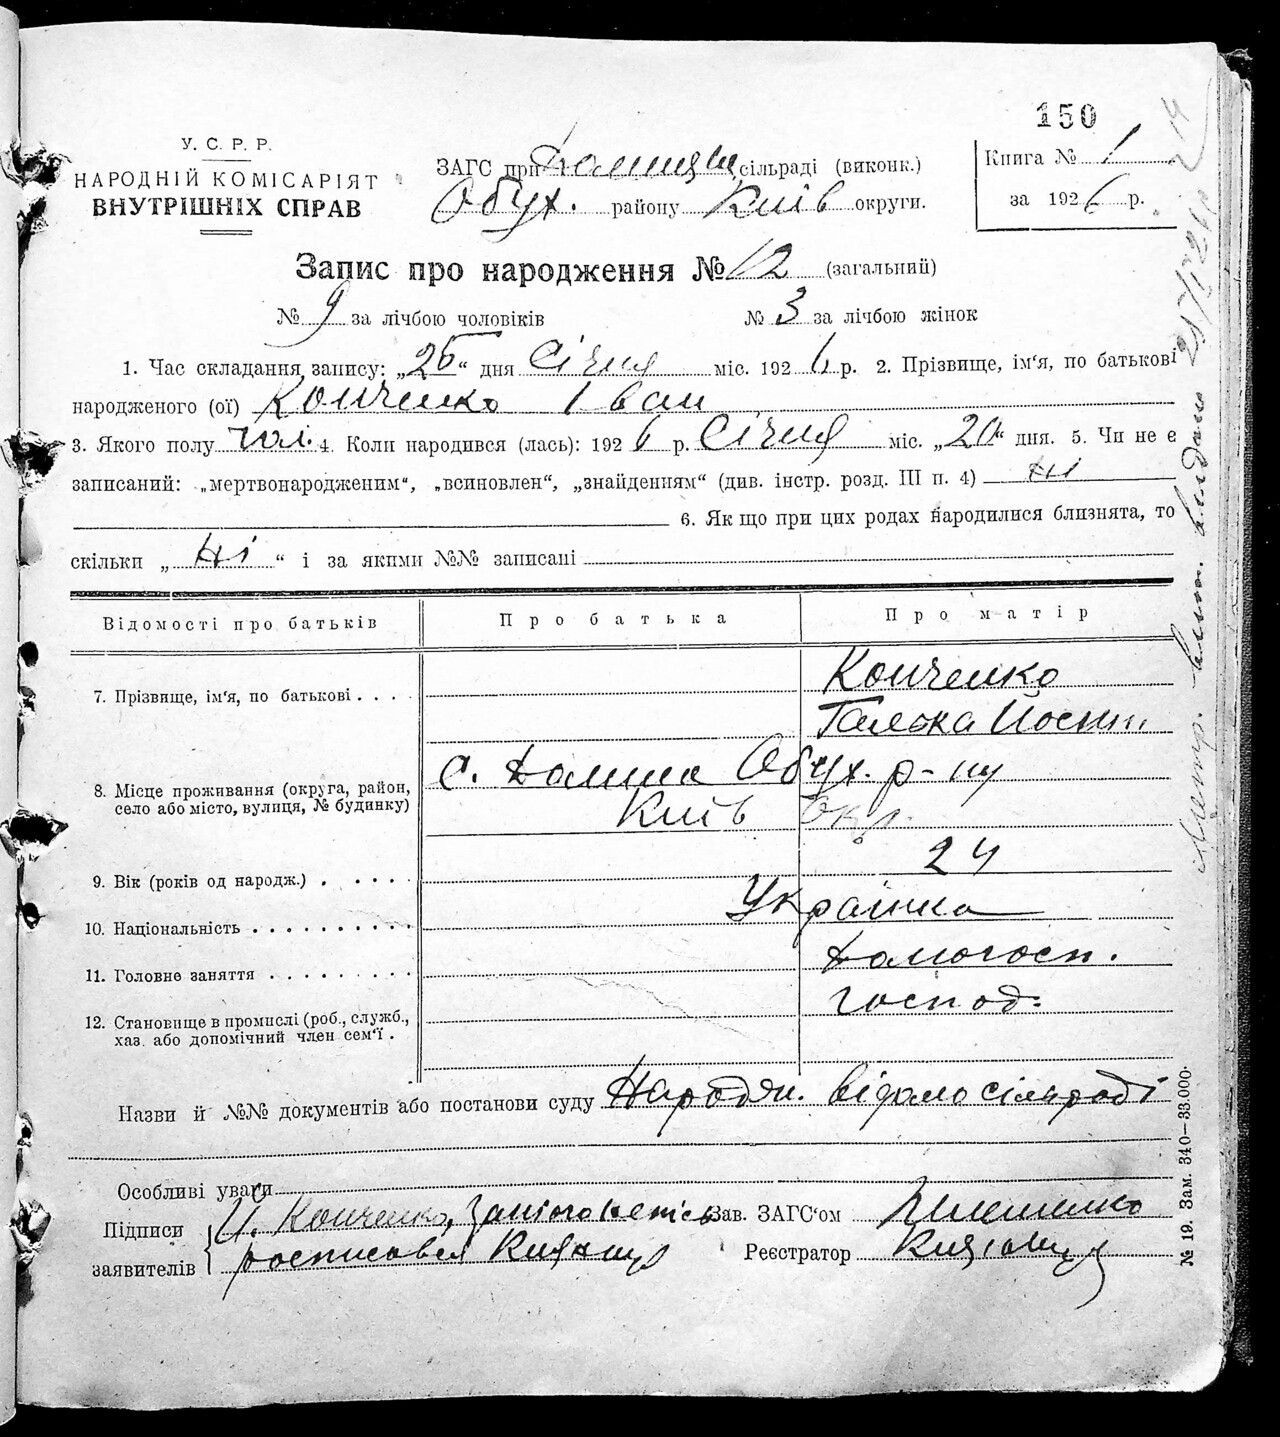 150
У. С. Р. Р.
НАРОДНІЙ КОМІСАРІЯТ
ВНУТРІШНІХ СПРАВ
ЗАГС при сільраді (виконк.)
Обух. району Київ округи.
Книга № 1
за 1926 р.
Запис про народження № 12 (загальний)
№ 9 за лічбою чоловіків № 3 за лічбою жінок
1. Час складання запису: „26“ дня Січня міс. 1926 р. 2. Прізвище, ім‘я, по батькові
народженого (ої) Конченко Іван
3. Якого полу чол. 4. Коли народився (лась): 1926 р. Січня міс. „20“ дня. 5. Чи не є
записаний: „мертвонародженим“, „всиновлен“, „знайденням“ (див. інстр. розд. III п. 4) ні
6. Як що при цих родах народилися близнята, то
скільки „ ні “ і за якими №№ записані
Відомості про батьків Про батька Про матір
7. Прізвище, ім‘я, по батькові . . . . Конченко
Галька Йосип.
8. Місце проживання (округа, район,
село або місто, вулиця, № будинку)
с. Долина Обух. р-ну
Київ окр.
9. Вік (років од народж.) . . . . . 24
10. Національність . . . . . . . . . . Українка
11. Головне заняття . . . . . . . . . Домогосп.
12. Становище в промислі (роб., служб.,
хаз. або допомічний член сем‘ї . господ.
Назви й №№ документів або постанови суду Народжн. відомо сільраді
Особливі уваги
Підписи
заявителів
Й. Конченко,
росписався
Зав. ЗАГС‘ом
Реєстратор
№ 19. Зам. 340—33.000.